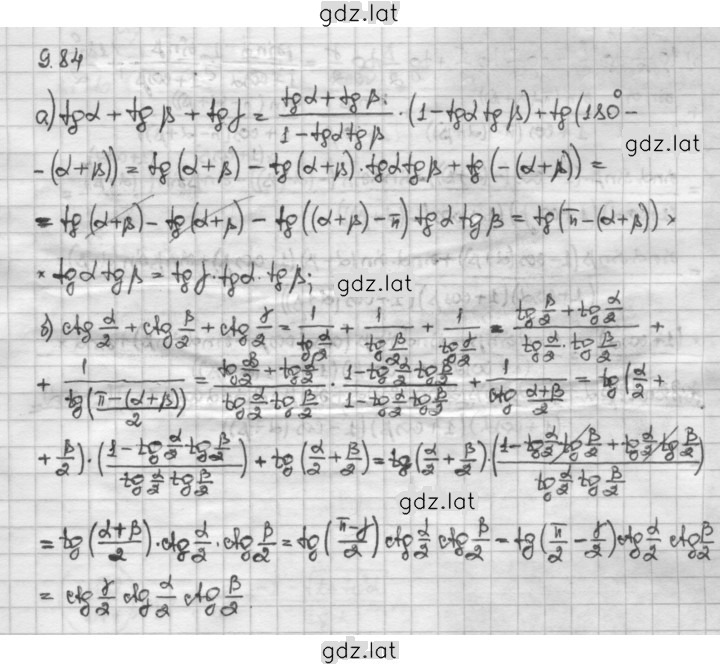 gdz.lat
9.84
а) tgα + tgβ + tgγ = (tgα + tgβ)/(1 - tgα tgβ) · (1 - tgα tgβ) + tg(180° -
gdz.lat
- (α+β)) = tg(α+β) - tg(α+β) · tgα tgβ + tg(-(α+β)) =
= tg(α+β) - tg(α+β) - tg((α+β) - π) tgα tgβ = tg(π - (α+β)) ×
× tgα tgβ = tgγ · tgα · tgβ;
gdz.lat
б) ctg α/2 + ctg β/2 + ctg γ/2 = 1/(tg α/2) + 1/(tg β/2) + 1/(tg γ/2) = (tg β/2 + tg α/2)/(tg α/2 · tg β/2) +
+ 1/(tg((π-(α+β))/2)) = (tg α/2 + tg β/2)/(tg α/2 tg β/2) · (1 - tg α/2 tg β/2)/(1 - tg α/2 tg β/2) + 1/(ctg (α+β)/2) = tg(α/2 +
+ β/2) · ((1 - tg α/2 tg β/2)/(tg α/2 tg β/2)) + tg(α/2 + β/2) = tg(α/2 + β/2) · ((1 - tg α/2 tg β/2 + tg α/2 tg β/2)/(tg α/2 tg β/2))
gdz.lat
= tg((α+β)/2) · ctg α/2 · ctg β/2 = tg((π-γ)/2) ctg α/2 ctg β/2 = tg(π/2 - γ/2) ctg α/2 ctg β/2
= ctg γ/2 ctg α/2 ctg β/2.
gdz.lat